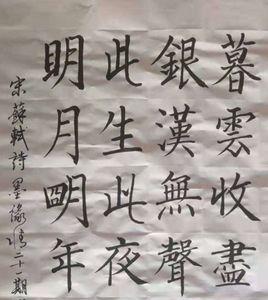 暮雲收盡
銀漢無聲
此生此夜
明月朙年
宋蘇軾詩墨緣情二十一期